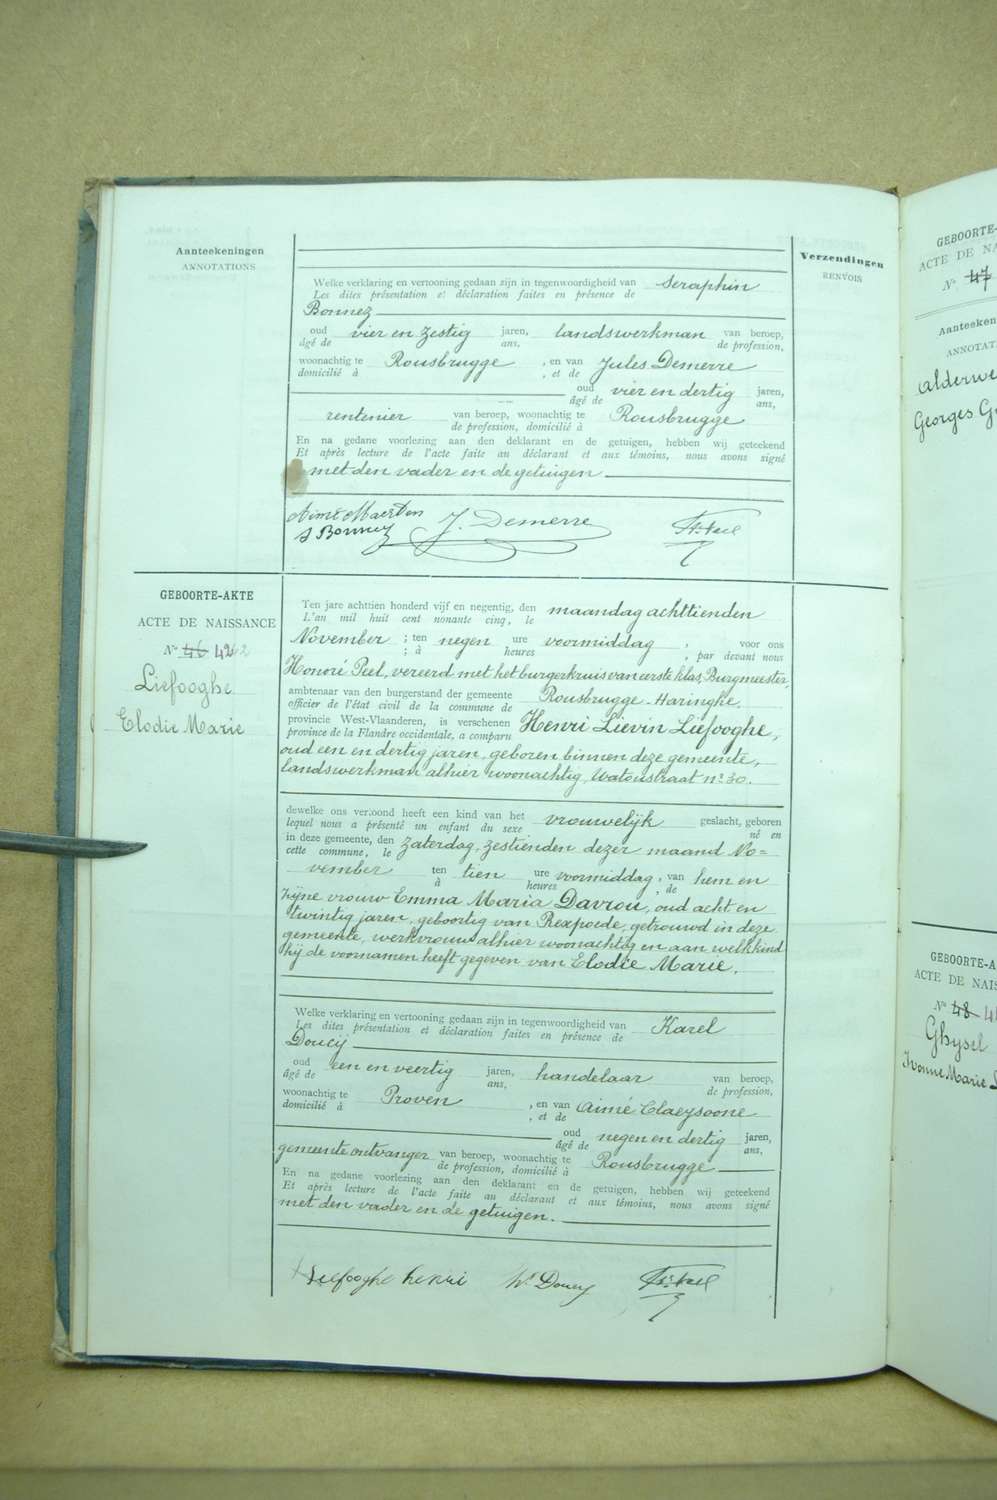 Aanteekeningen
ANNOTATIONS
Verzendingen
RENVOIS
Welke verklaring en vertooning gedaan zijn in tegenwoordigheid van Seraphin
Les dites présentation et déclaration faites en présence de
Bonnez
oud vier en zestig jaren, landswerkman van beroep,
âgé de ans, de profession,
woonachtig te Rousbrugge , en van Jules Demerre
domicilié à , et de
oud vier en dertig jaren,
âgé de ans,
rentenier van beroep, woonachtig te Rousbrugge
de profession, domicilié à
En na gedane voorlezing aan den deklarant en de getuigen, hebben wij geteekend
Et après lecture de l'acte faite au déclarant et aux témoins, nous avons signé
met den vader en de getuigen
Aimé Maerten
S Bonnez J. Demerre
GEBOORTE-AKTE
ACTE DE NAISSANCE
N° 46 42
Liefooghe
Elodie Marie
Ten jare achttien honderd vijf en negentig, den maandag achttienden
L'an mil huit cent nonante cinq, le
November ; ten negen ure voormiddag , voor ons
; à heures , par devant nous
Honoré Peel, vereerd met het burgerkruis van eerste klas, Burgmeester,
ambtenaar van den burgerstand der gemeente Rousbrugge-Haringhe,
officier de l'état civil de la commune de
provincie West-Vlaanderen, is verschenen Henri Lievin Liefooghe,
province de la Flandre occidentale, a comparu
oud een en dertig jaren, geboren binnen deze gemeente,
landswerkman alhier woonachtig, Watoustraat n° 30.
dewelke ons vertoond heeft een kind van het vrouwelijk geslacht, geboren
lequel nous a présenté un enfant du sexe né en
in deze gemeente, den zaterdag, zestienden dezer maand No=
cette commune, le
vember ten tien ure voormiddag , van hem en
à heures , de
zijne vrouw Emma Maria Davrou, oud acht en
twintig jaren, geboortig van Rexpoede, getrouwd in deze
gemeente, werkvrouw alhier woonachtig en aan welk kind
hij de voornamen heeft gegeven van Elodie Marie.
Welke verklaring en vertooning gedaan zijn in tegenwoordigheid van Karel
Les dites présentation et déclaration faites en présence de
Doucij
oud een en veertig jaren, handelaar van beroep,
âgé de ans, de profession,
woonachtig te Proven , en van Aimé Claeysoone
domicilié à , et de
oud negen en dertig jaren,
âgé de ans,
gemeente ontvanger van beroep, woonachtig te Rousbrugge
de profession, domicilié à
En na gedane voorlezing aan den deklarant en de getuigen, hebben wij geteekend
Et après lecture de l'acte faite au déclarant et aux témoins, nous avons signé
met den vader en de getuigen.
Liefooghe henri Doucy
GEBOORTE-
ACTE DE NA
N° 47
Aanteeken
ANNOTAT
Georges
GEBOORTE-A
ACTE DE NAIS
N° 48
Ghysel
Ivonne Marie